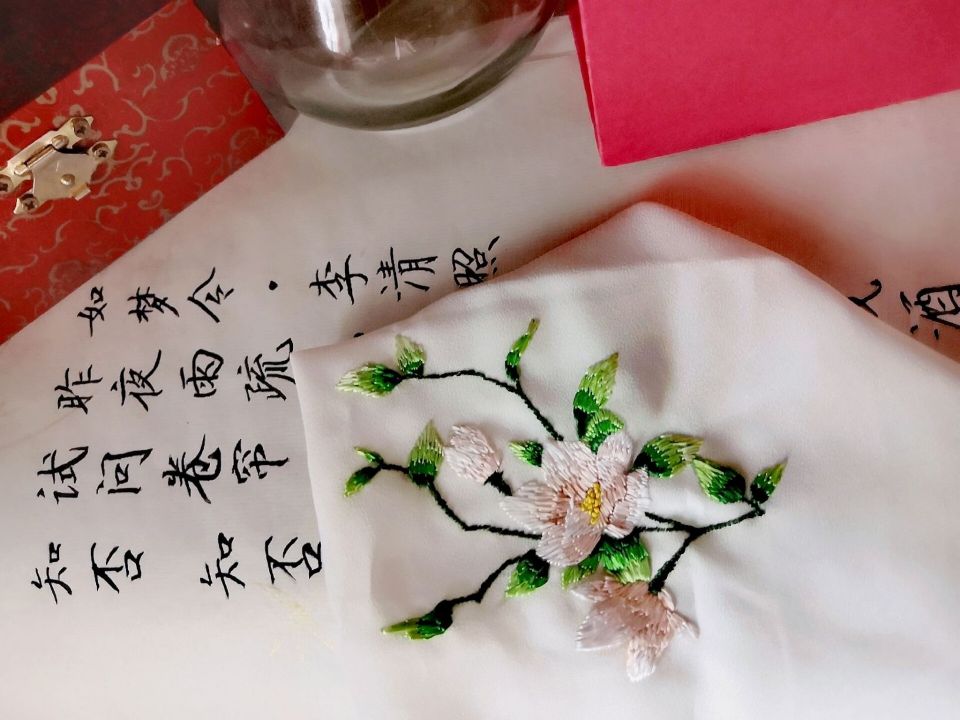 如梦令·李清照
昨夜雨疏
试问卷帘
知否 知否